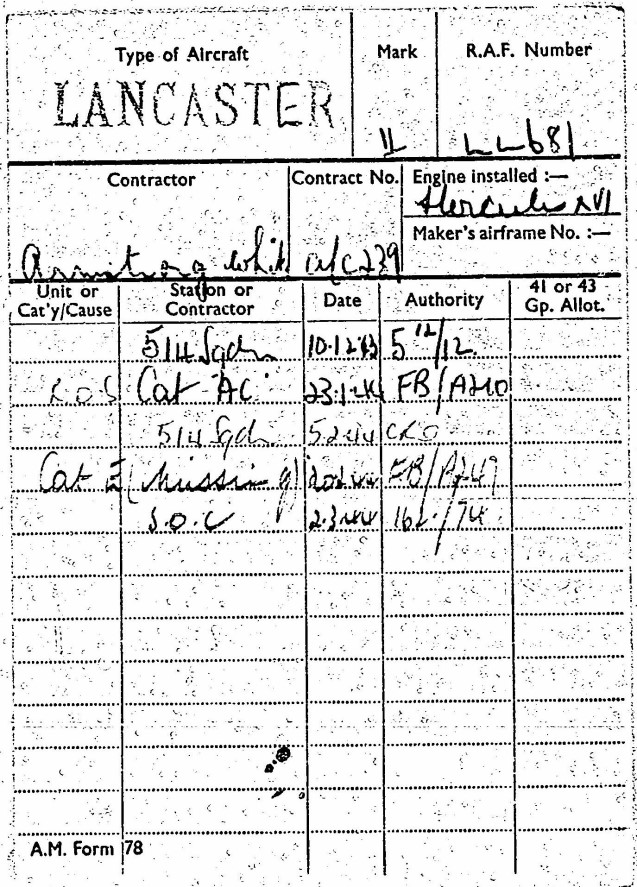 Type of Aircraft Mark R.A.F. Number
LANCASTER II LL681
Contractor Contract No. Engine installed :—
Hercules XVI
Maker's airframe No. :—
Armstrong Whit a/c 239
Unit or Cat'y/Cause Station or Contractor Date Authority 41 or 43 Gp. Allot.
514 Sqdn 10.12.43 5 12/12
R.O.S Cat AC 23.1.44 FB/A240
514 Sqdn 5.2.44 CRO
Cat E (Missing) 20.2.44 FB/A249
S.O.C 2.3.44 /74
A.M. Form 78